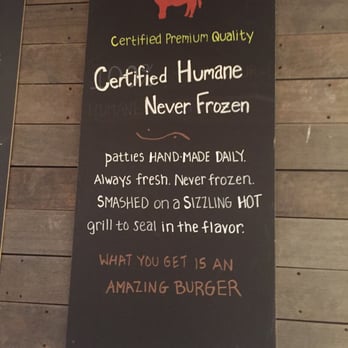 Certified Premium Quality
Certified Humane
Never Frozen
patties HAND-MADE DAILY.
Always fresh. Never frozen.
SMASHED on a SIZZLING HOT
grill to seal in the flavor.
WHAT YOU GET IS AN
AMAZING BURGER